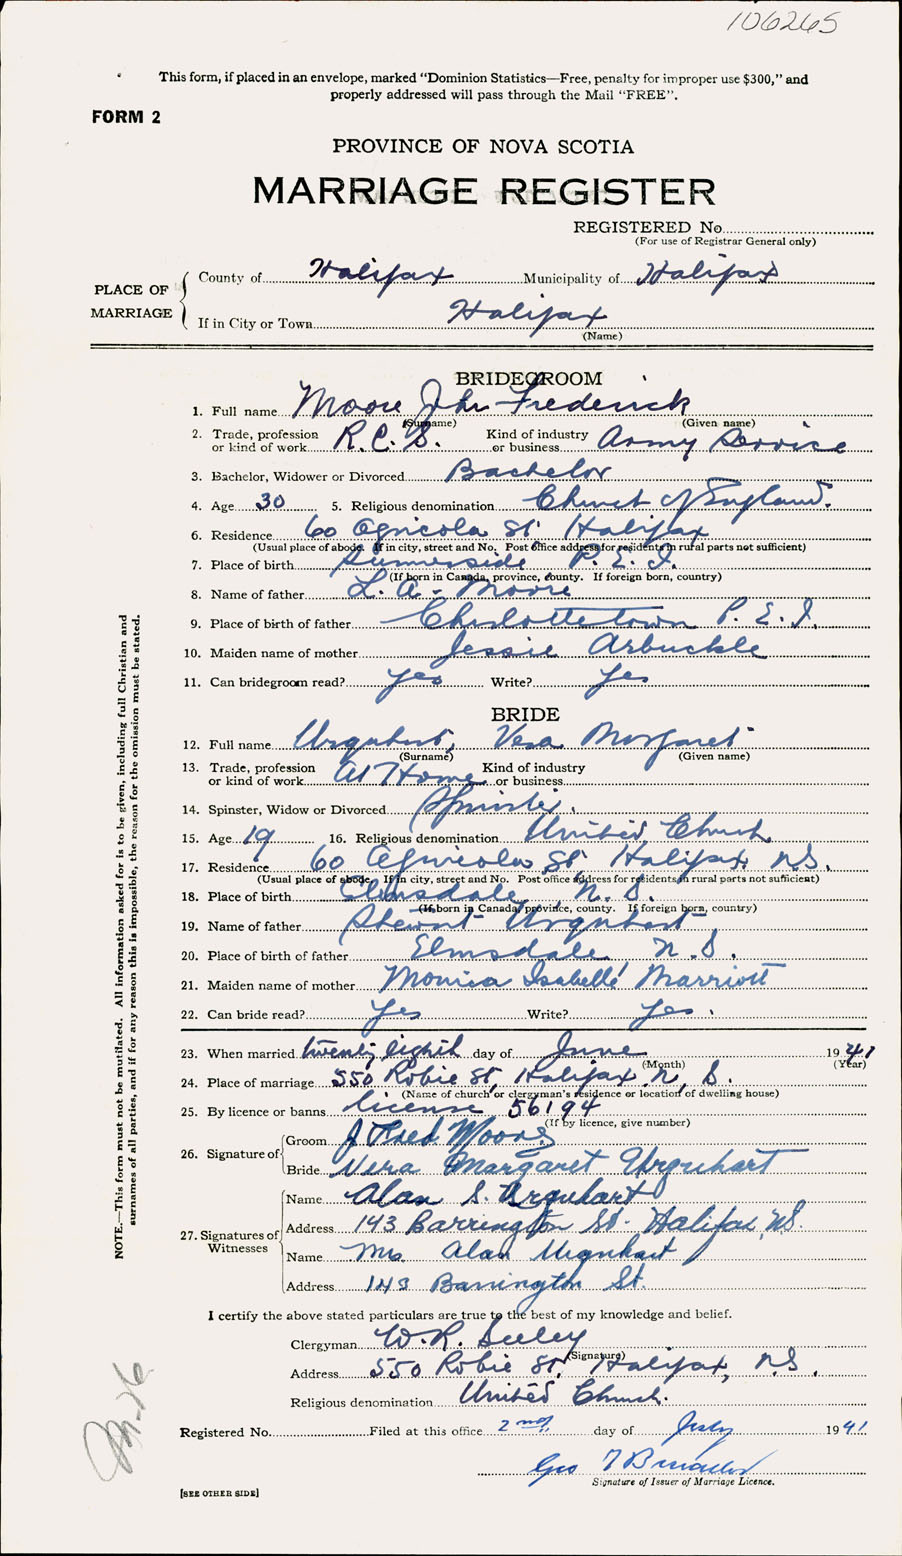 106265
This form, if placed in an envelope, marked "Dominion Statistics—Free, penalty for improper use $300," and
properly addressed will pass through the Mail "FREE".
FORM 2
PROVINCE OF NOVA SCOTIA
MARRIAGE REGISTER
REGISTERED No.
(For use of Registrar General only)
PLACE OF MARRIAGE
County of Halifax Municipality of Halifax
If in City or Town Halifax
(Name)
BRIDEGROOM
1. Full name Moore John Frederick
(Surname) (Given name)
2. Trade, profession or kind of work R.C.S. Kind of industry or business Army Service
3. Bachelor, Widower or Divorced Bachelor
4. Age 30 5. Religious denomination Church of England.
6. Residence 60 Agricola St. Halifax
(Usual place of abode. If in city, street and No. Post office address for residents in rural parts not sufficient)
7. Place of birth Summerside P.E.I.
(If born in Canada, province, county. If foreign born, country)
8. Name of father L. A. Moore
9. Place of birth of father Charlottetown P.E.I.
10. Maiden name of mother Jessie Arbuckle
11. Can bridegroom read? Yes Write? Yes
BRIDE
12. Full name Urquhart, Vera Margaret
(Surname) (Given name)
13. Trade, profession or kind of work At Home Kind of industry or business
14. Spinster, Widow or Divorced Spinster.
15. Age 19 16. Religious denomination United Church
17. Residence 60 Agricola St Halifax N.S.
(Usual place of abode. If in city, street and No. Post office address for residents in rural parts not sufficient)
18. Place of birth Elmsdale, N.S.
(If born in Canada, province, county. If foreign born, country)
19. Name of father Stewart Urquhart
20. Place of birth of father Elmsdale N.S.
21. Maiden name of mother Monica Isabelle Marriott
22. Can bride read? Yes Write? Yes.
23. When married twenty eighth day of June 1941
(Month) (Year)
24. Place of marriage 550 Robie St, Halifax, N.S.
(Name of church or clergyman's residence or location of dwelling house)
25. By licence or banns license 56194
(If by licence, give number)
26. Signature of Groom J Fred Moore
Bride Vera Margaret Urquhart
27. Signatures of Witnesses
Name Alan S. Urquhart
Address 143 Barrington St. Halifax, N.S.
Name Mrs Alan Urquhart
Address 143 Barrington St.
I certify the above stated particulars are true to the best of my knowledge and belief.
Clergyman W.R. Seeley
(Signature)
Address 550 Robie St, Halifax, N.S.
Religious denomination United Church.
Registered No. Filed at this office 2nd day of July 1941
Geo
Signature of Issuer of Marriage Licence.
[SEE OTHER SIDE]
NOTE.—This form must not be mutilated. All information asked for is to be given, including full Christian and
surnames of all parties, and if for any reason this is impossible, the reason for the omission must be stated.